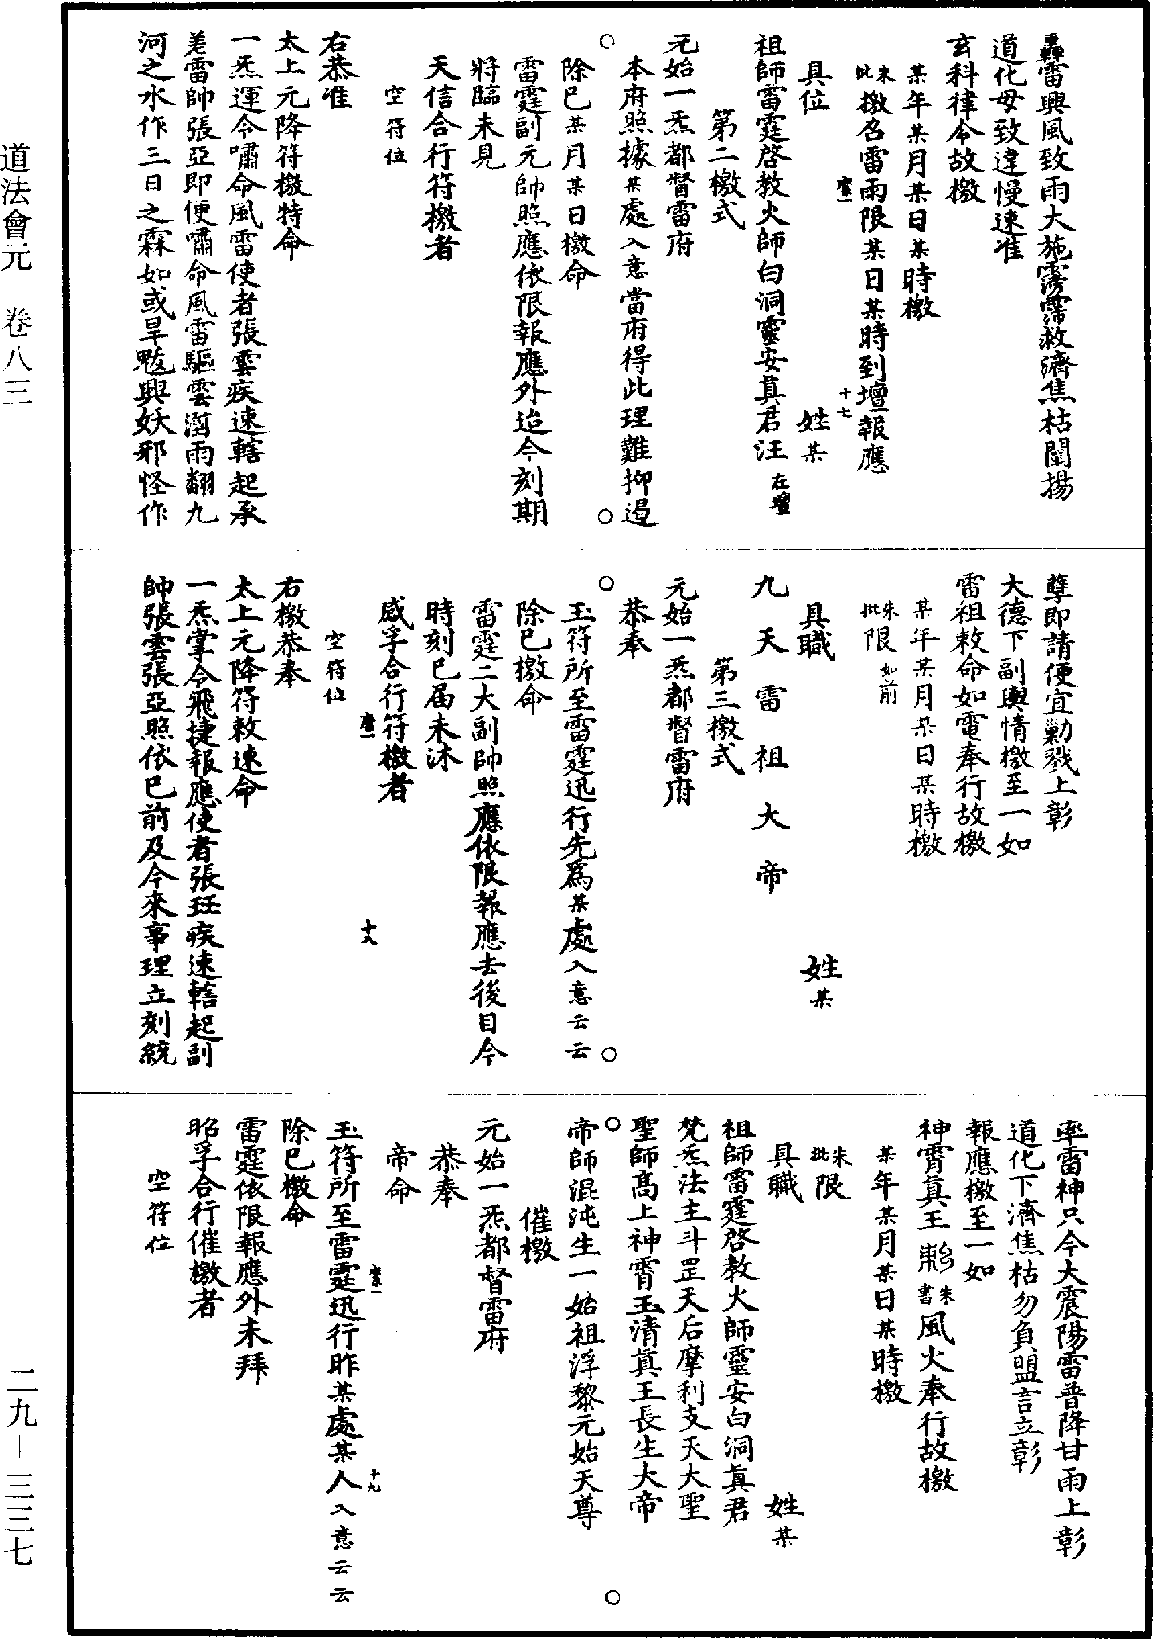 轟雷興風致雨大施霶霈救濟焦枯闡揚
道化毋致違慢速准
玄科律令故檄
某年某月某日某時檄
朱批檄召雷雨限某日某時到壇報應
具位 姓某
祖師雷霆啓教火師白洞靈安真君汪在壇
第二檄式
元始一炁都督雷府
本府照據某處入意當府得此理難抑遏
除已某月某日檄命
雷霆副元帥照應依限報應外迨今刻期
將臨未見
天信合行符檄者
空符位
右恭准
太上元降符檄特命
一炁運令嘯命風雷使者張雲疾速轄起承
差雷帥張亞即便嘯命風雷驅雲澍雨翻九
河之水作三日之霖如或旱魃興妖邪怪作
孽即請便宜勦戮上彰
大德下副輿情檄至一如
雷祖敕命如電奉行故檄
某年某月某日某時檄
朱批限如前
具職 姓某
九天雷祖大帝
第三檄式
元始一炁都督雷府
恭奉
玉符所至雷霆迅行先爲某處入意云云
除已檄命
雷霆二大副帥照應依限報應去後目今
時刻已届未沐
感孚合行符檄者
空符位
右檄恭奉
太上元降符敕速命
一炁掌令飛捷報應使者張珏疾速轄起副
帥張雲張亞照依已前及今來事理立刻統
率雷神只今大震陽雷普降甘雨上彰
道化下濟焦枯勿負盟言立彰
報應檄至一如
神霄真王朱書風火奉行故檄
某年某月某日某時檄
朱批限
具職 姓某
祖師雷霆啓教火師靈安白洞真君
梵炁法主斗罡天后摩利支天大聖
聖師高上神霄玉清真王長生大帝
帝師混沌生一始祖浮黎元始天尊
催檄
元始一炁都督雷府
恭奉
帝命
玉符所至雷霆迅行昨某處某人入意云云
除已檄命
雷霆依限報應外未拜
昭孚合行催檄者
空符位
十七
十八
十九
道法會元 卷八三
二九－三三七